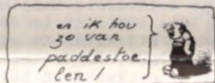 en ik hou
zo van
paddestoe
len!